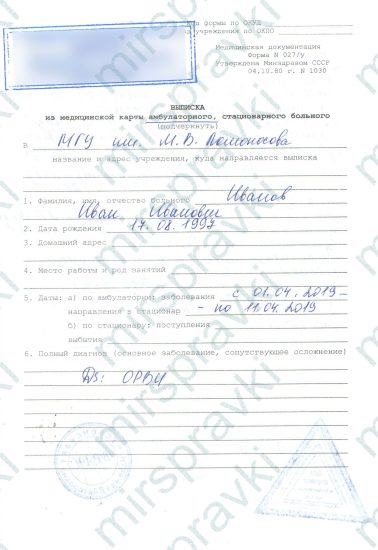 формы по ОКУД
учреждения по ОКПО
Медицинская документация
Форма N 027/у
Утверждена Минздравом СССР
04.10.80 г. N 1030
ВЫПИСКА
из медицинской карты амбулаторного, стационарного больного
(подчеркнуть)
В МГУ им. М. В. Ломоносова
название и адрес учреждения, куда направляется выписка
1. Фамилия, имя, отчество больного Иванов
Иван Иванович
2. Дата рождения 17.08.1997
3. Домашний адрес
4. Место работы и род занятий
5. Даты: а) по амбулатории: заболевания с 01.04.2019 -
направления в стационар - по 11.04.2019
б) по стационару: поступления
выбытия
6. Полный диагноз (основное заболевание, сопутствующее осложнение)
Ds: ОРВИ
mirspravki